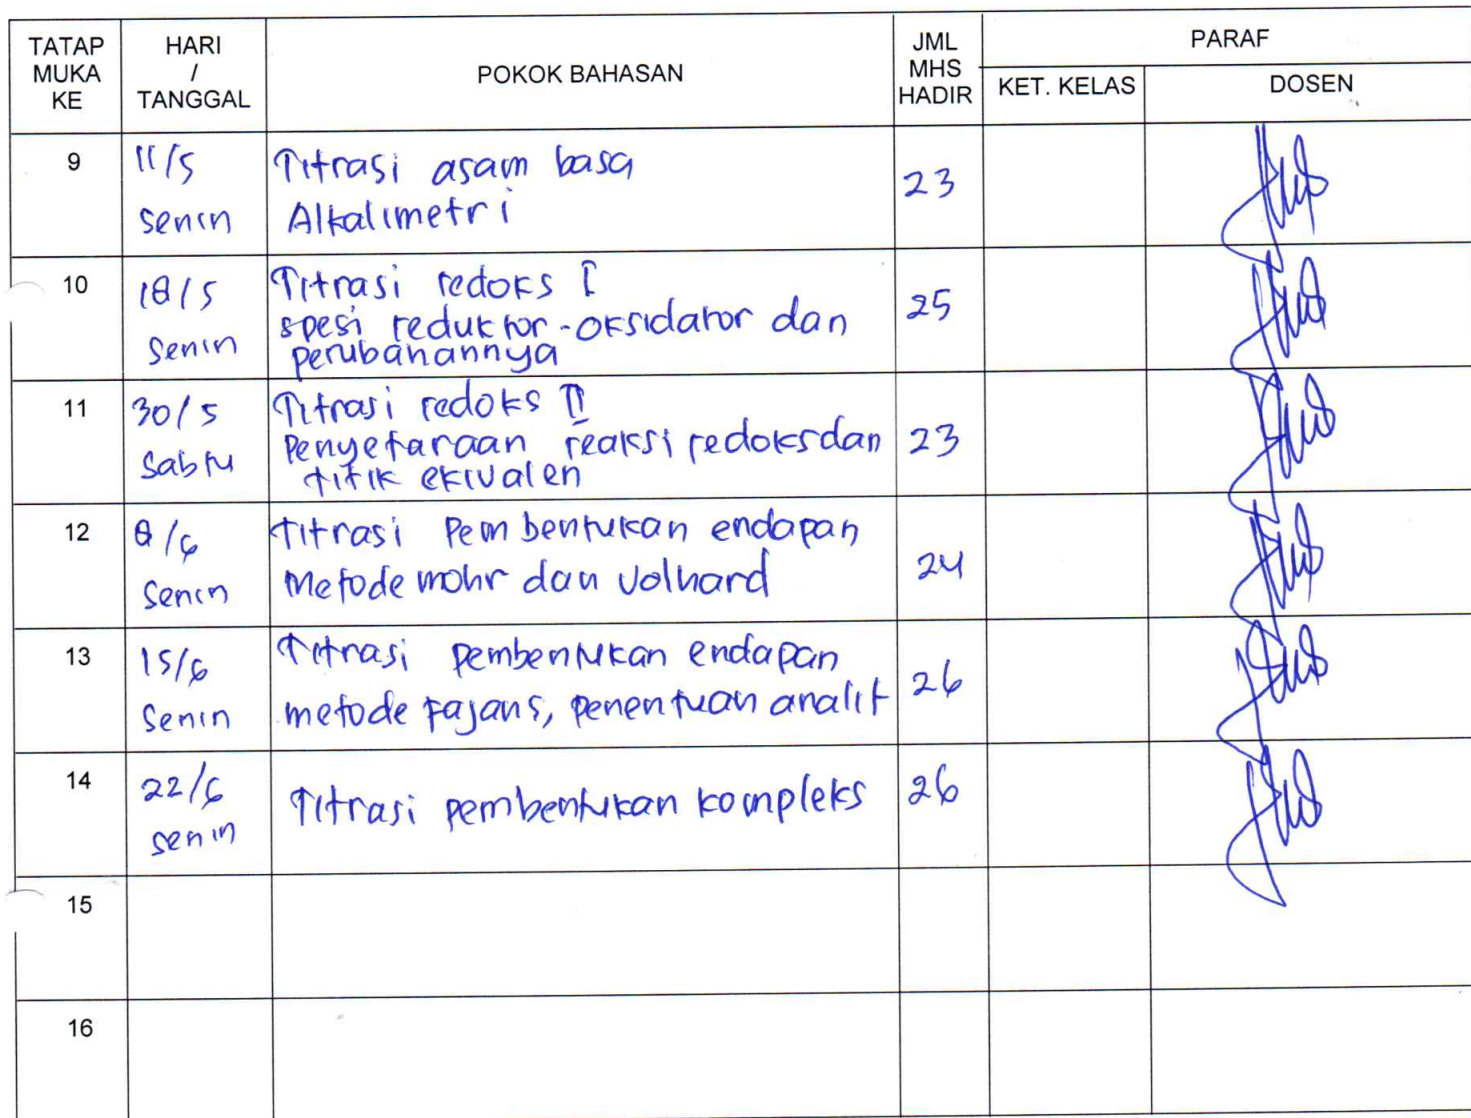 TATAP MUKA KE
HARI / TANGGAL
POKOK BAHASAN
JML MHS HADIR
PARAF
KET. KELAS
DOSEN
9
11/5
Senin
Titrasi asam basa
Alkalimetri
23
10
18/5
Senin
Titrasi redoks I
spesi reduktor-oksidator dan
perubahannya
25
11
30/5
Sabtu
Titrasi redoks II
Penyetaraan reaksi redoks dan
titik ekivalen
23
12
8/6
Senin
Titrasi Pembentukan endapan
Metode mohr dan Volhard
24
13
15/6
Senin
Titrasi pembentukan endapan
metode fajans, penentuan analit
26
14
22/6
senin
Titrasi pembentukan kompleks
26
15
16